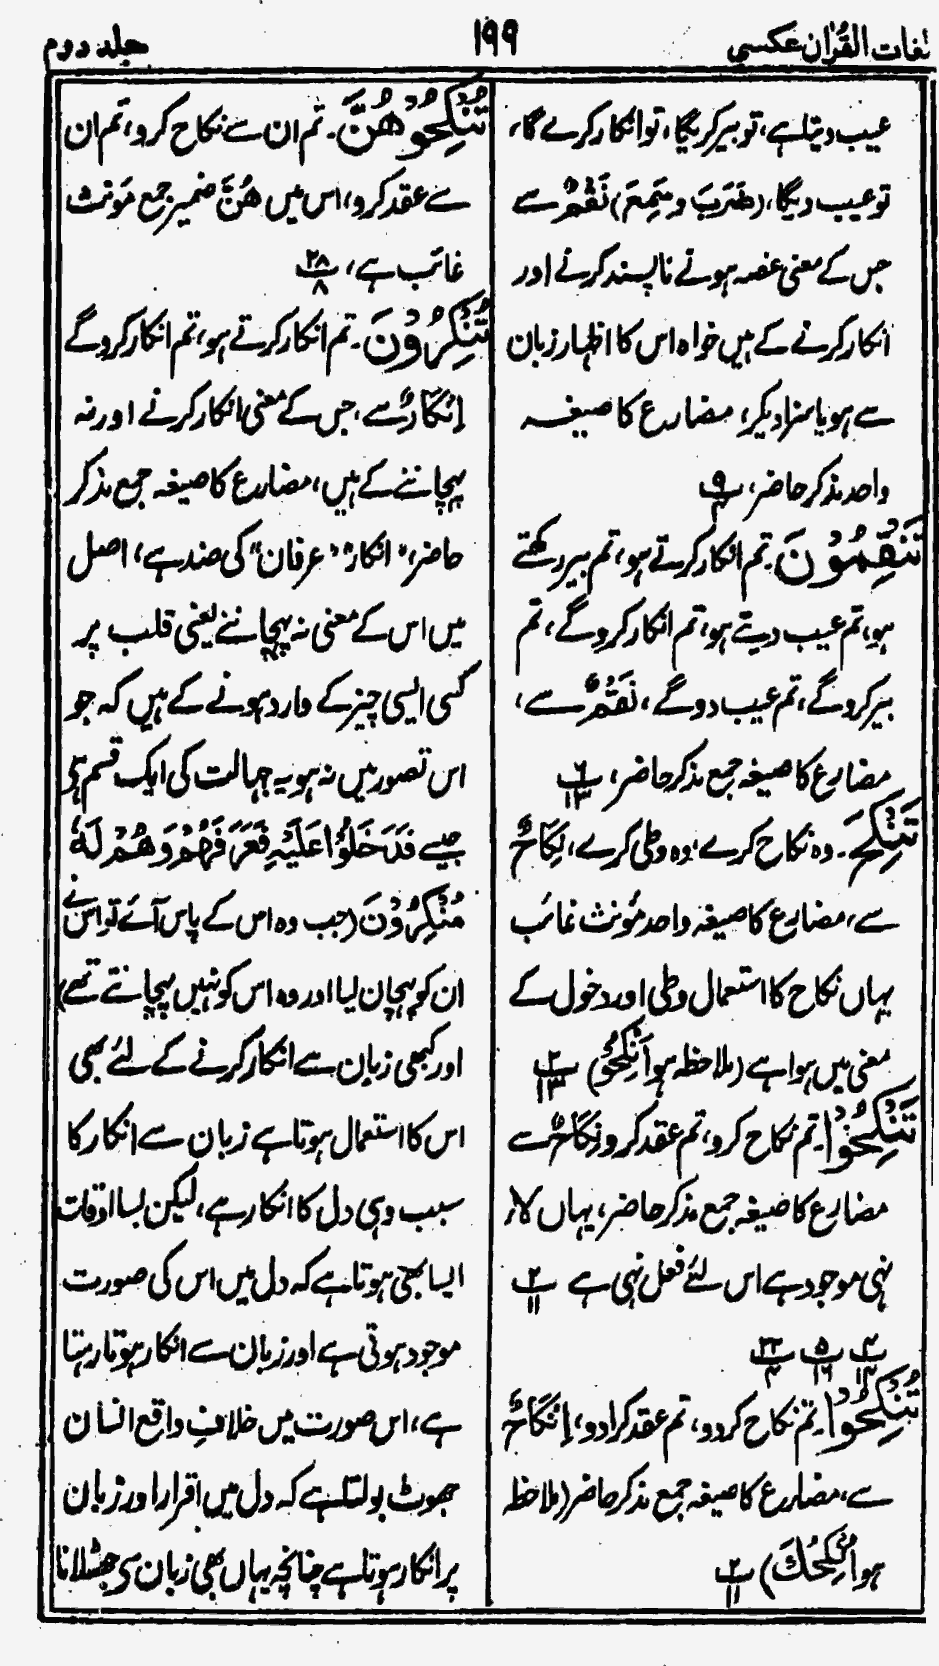 لغات القرآن عکسی
۱۹۹
جلد دوم
عیب دیتا ہے، تو بیر کریگا، تو انکار کرے گا،
تو عیب دیگا، (ضَرَبَ و سَمِعَ) نَقْمٌ سے
جس کے معنی غصہ ہونے ناپسند کرنے اور
انکار کرنے کے ہیں خواہ اس کا اظہار زبان
سے ہو یا سزا دیکر، مضارع کا صیغہ
واحد مذکر حاضر، پ ۹
تَنْقِمُوْنَ۔ تم انکار کرتے ہو، تم بیر رکھتے
ہو، تم عیب دیتے ہو، تم انکار کروگے، تم
بیر کروگے، تم عیب دوگے، نَقْمٌ سے،
مضارع کا صیغہ جمع مذکر حاضر، پ ۶ ۱۳
تَنْكِحَ۔ وہ نکاح کرے، وہ وطی کرے، نِکَاحٌ
سے، مضارع کا صیغہ واحد مؤنث غائب
یہاں نکاح کا استعمال وطی اور دخول کے
معنی میں ہوا ہے (ملاحظہ ہو اَنْكِحُوْ) پ ۲ ۱۳
تَنْكِحُوْا۔ تم نکاح کرو، تم عقد کرو نِکَاحٌ سے
مضارع کا صیغہ جمع مذکر حاضر، یہاں لاءِ
نہی موجود ہے اس لئے فعل نہی ہے پ ۲ ۱۱
پ ۴ ۱۴ پ ۵ ۱۶ پ ۲۲ ۴
تُنْكِحُوْا۔ تم نکاح کردو، تم عقد کرادو، اِنْكَاحٌ
سے، مضارع کا صیغہ جمع مذکر حاضر (ملاحظہ
ہو اُنْكِحَكَ) پ ۲ ۱۱
تَنْكِحُوْهُنَّ۔ تم ان سے نکاح کرو، تم ان
سے عقد کرو، اس میں هُنَّ ضمیر جمع مؤنث
غائب ہے، پ ۲۸ ۸
تُنْكِرُوْنَ۔ تم انکار کرتے ہو، تم انکار کروگے
اِنْكَارٌ سے، جس کے معنی انکار کرنے اور نہ
پہچاننے کے ہیں، مضارع کا صیغہ جمع مذکر
حاضر، "انکار" "عرفان" کی ضد ہے، اصل
میں اس کے معنی نہ پہچاننے یعنی قلب پر
کسی ایسی چیز کے وارد ہونے کے ہیں کہ جو
اس تصور میں نہ ہو یہ جہالت کی ایک قسم ہی
جیسے فَدَخَلُوْا عَلَيْهِ فَعَرَفَهُمْ وَهُمْ لَهٗ
مُنْكِرُوْنَ (جب وہ اس کے پاس آئے تو اس نے
ان کو پہچان لیا اور وہ اس کو نہیں پہچانتے تھے)
اور کبھی زبان سے انکار کرنے کے لئے بھی
اس کا استعمال ہوتا ہے زبان سے انکار کا
سبب وہی دل کا انکار ہے، لیکن بسا اوقات
ایسا بھی ہوتا ہے کہ دل میں اس کی صورت
موجود ہوتی ہے اور زبان سے انکار ہوتا رہتا
ہے، اس صورت میں خلافِ واقع انسان
جھوٹ بولتا ہے کہ دل میں اقرار اور زبان
پر انکار ہوتا ہے چنانچہ یہاں بھی زبان سے جھٹلانا